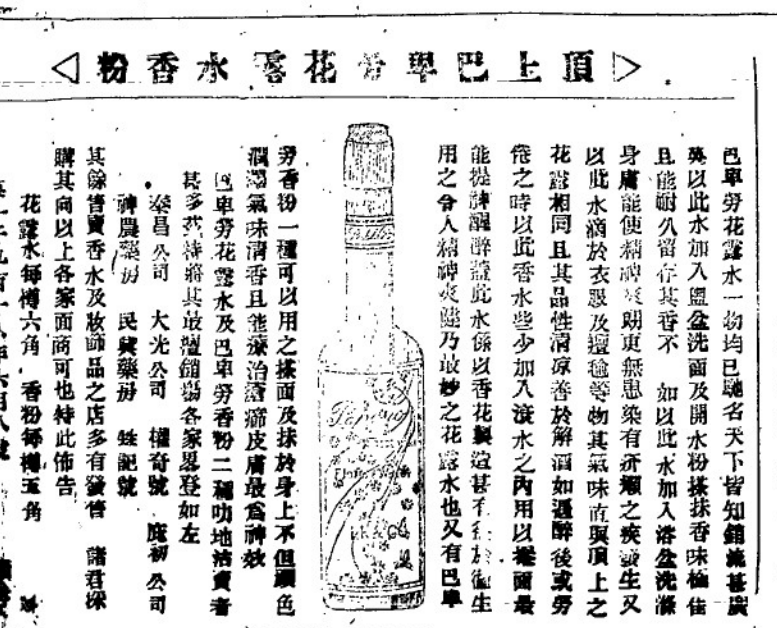 頂上巴畢勞花露水香粉
巴畢勞花露水一物均已馳名天下皆知銷流甚廣
以此水加入盥盆洗面及開水粉搽抹香味極佳
且能耐久留存其香不 如以此水加入浴盆洗滌
身膚能使精神爽朗更無患染有疥癩之疾發生又
以此水滴於衣服及氈毯等物其氣味直與頂上之
花露相同且其品性清凉善於解酒如遇醉後或勞
倦之時以此香水些少加入滾水之內用以擦面最
能提神醒醉蓋此水係以香花製造甚有 於衛生
用之令人精神爽健乃最妙之花露水也又有巴畢
勞香粉一種可以用之搽面及抹於身上不但顏色
潤澤氣味清香且能療治瘡癬皮膚最爲神效
巴畢勞花露水及巴畢勞香粉二種叻地沽賣者
甚多茲特將其最溋銷塲各家畧登如左
泰昌公司 大光公司 權奇號 廣初公司
神農藥房 民興藥房 號
其餘售賣香水及妝飾品之店多有發售 諸君採
購其向以上各家面商可也特此佈告
花露水每樽六角 香粉每樽五角
一千九百一八年六月八號